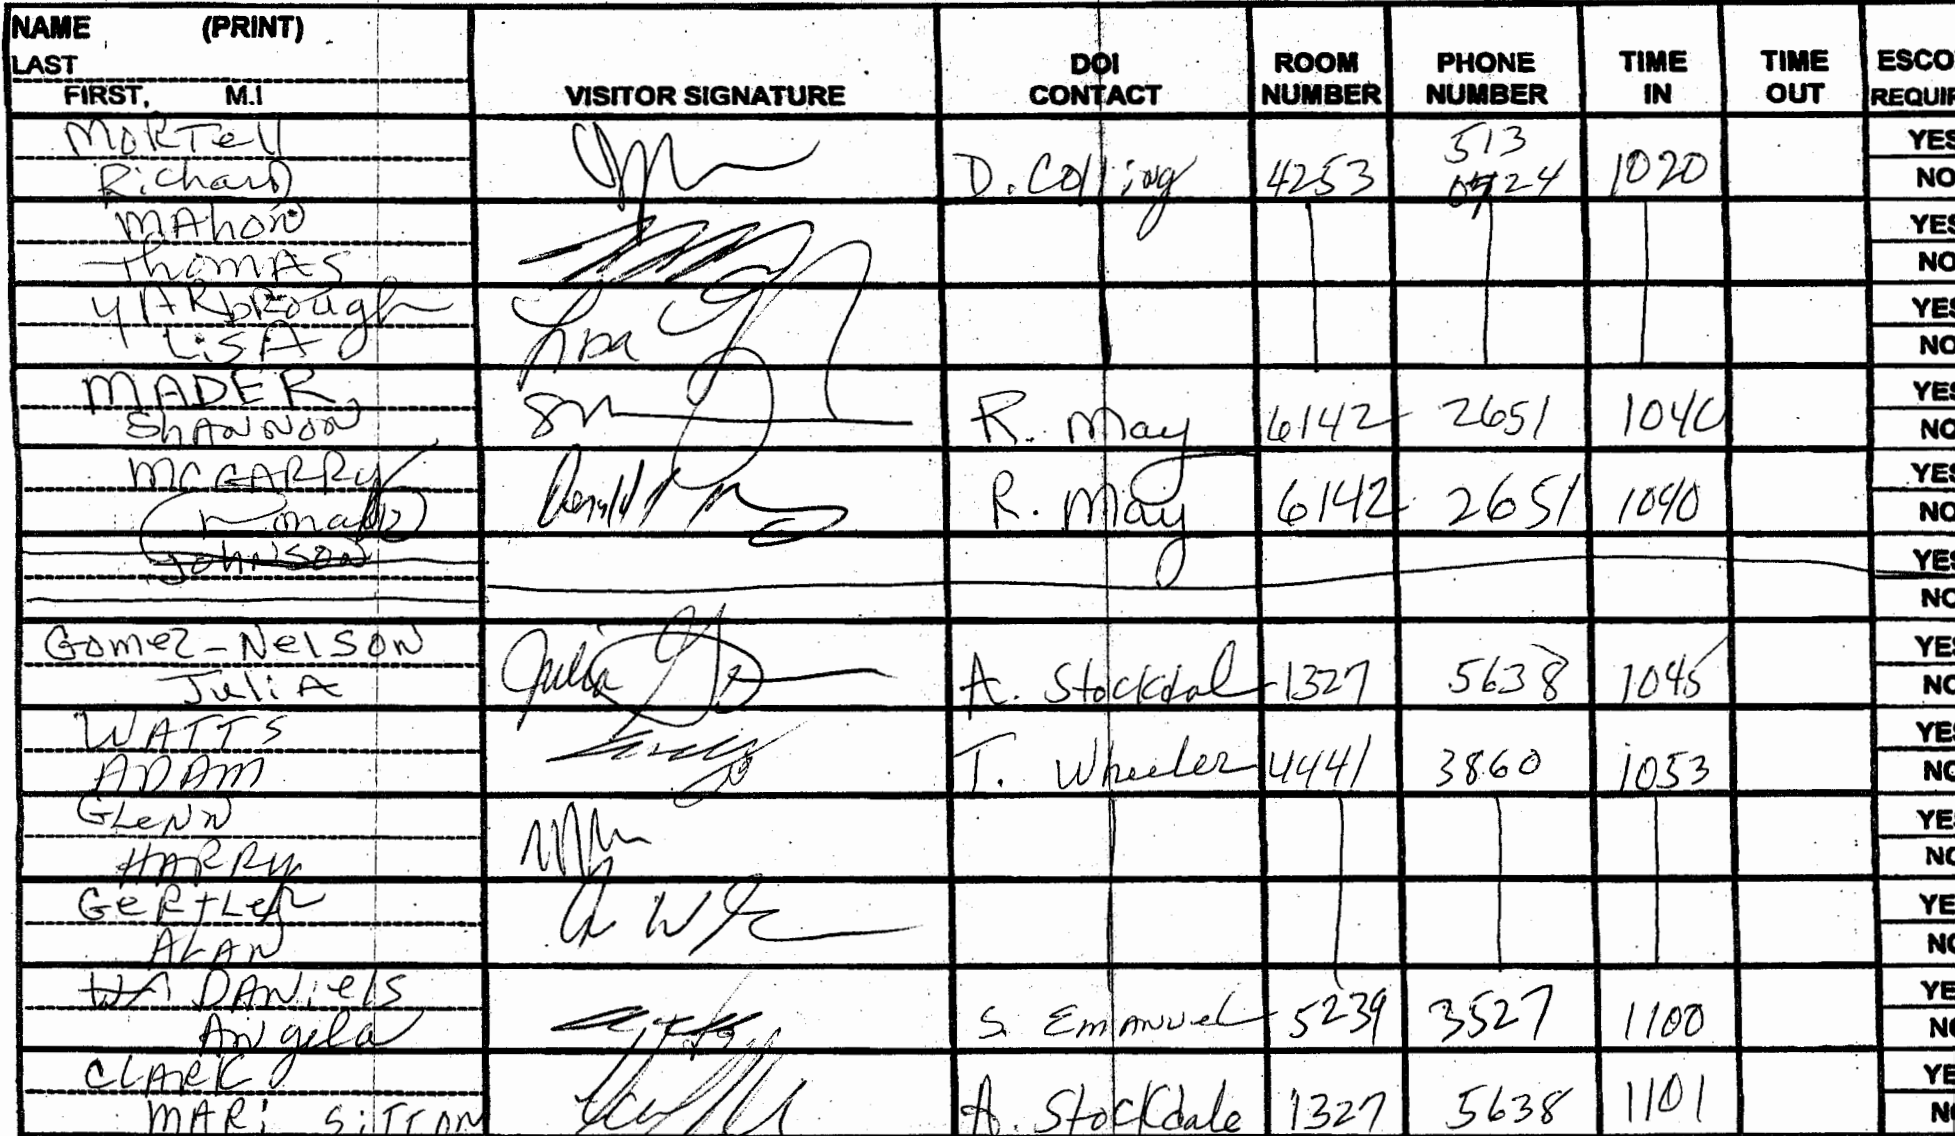 NAME (PRINT)
LAST
FIRST, M.I
VISITOR SIGNATURE
DOI CONTACT
ROOM NUMBER
PHONE NUMBER
TIME IN
TIME OUT
ESCO
REQUIR
MORTell
Richard
D. Colling 4253 513 0724 1020
YES
NO
MAhon
ThomAS
YES
NO
YARbRough
LiSA
Lisa
YES
NO
MADER,
ShANNON
R. May 6142 2651 1040
YES
NO
MCGARRY
Ronald
R. May 6142 2651 1040
YES
NO
Johnson
YES
NO
Gomez-Nelson
JuliA
Julia
A. Stockdal 1327 5638 1045
YES
NO
WATTS
ADAM
T. Wheeler 4441 3860 1053
YES
NO
GLeNN
HARRY
YES
NO
GeRtLeR
ALAN
YE
NO
WA DANiels
Angela
S. Emanuel 5239 3527 1100
YE
NO
CLARK
MARi SiTTON
A. Stockdale 1327 5638 1101
YE
NO